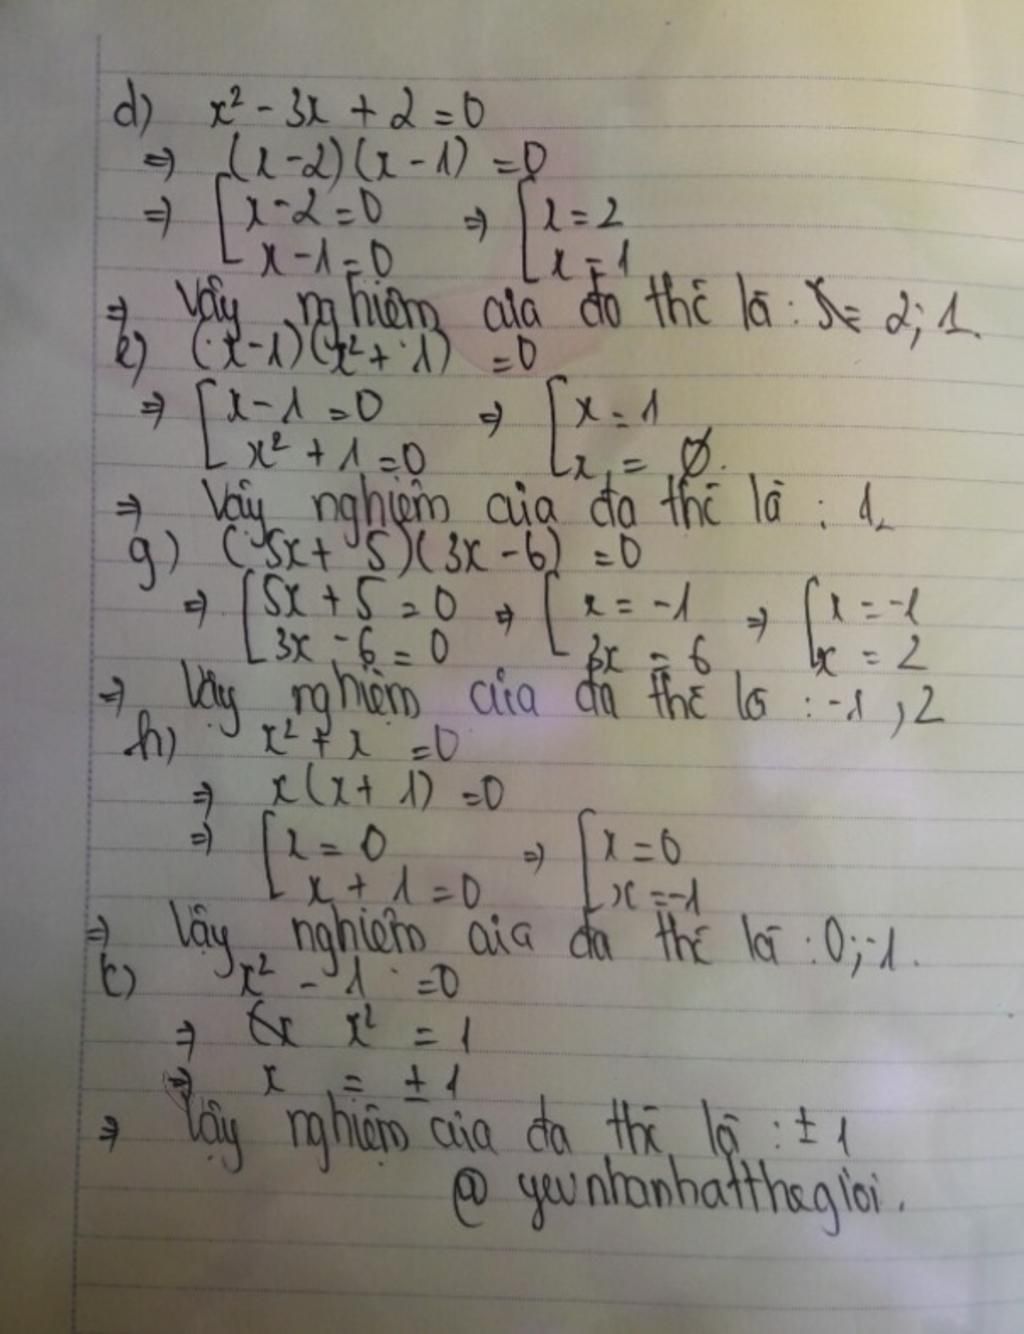 d) x² - 3x + 2 = 0
⇒ (x - 2)(x - 1) = 0
⇒ [ x - 2 = 0 ⇒ [ x = 2
x - 1 = 0 x = 1
⇒ Vậy nghiệm của đa thức là : x = 2; 1.
e) (x - 1)(x² + 1) = 0
⇒ [ x - 1 = 0 ⇒ [ x = 1
x² + 1 = 0 x = ∅.
⇒ Vậy nghiệm của đa thức là : 1.
g) (5x + 5)(3x - 6) = 0
⇒ [ 5x + 5 = 0 ⇒ [ x = -1 ⇒ [ x = -1
3x - 6 = 0 3x = 6 x = 2
⇒ Vậy nghiệm của đa thức là : -1 ; 2
h) x² + x = 0
⇒ x(x + 1) = 0
⇒ [ x = 0 ⇒ [ x = 0
x + 1 = 0 x = -1
⇒ Vậy nghiệm của đa thức là : 0; -1.
x² - 1 = 0
⇒ x² = 1
⇒ x = ± 1
⇒ Vậy nghiệm của đa thức là : ± 1
@ yeunhanhatthegioi.